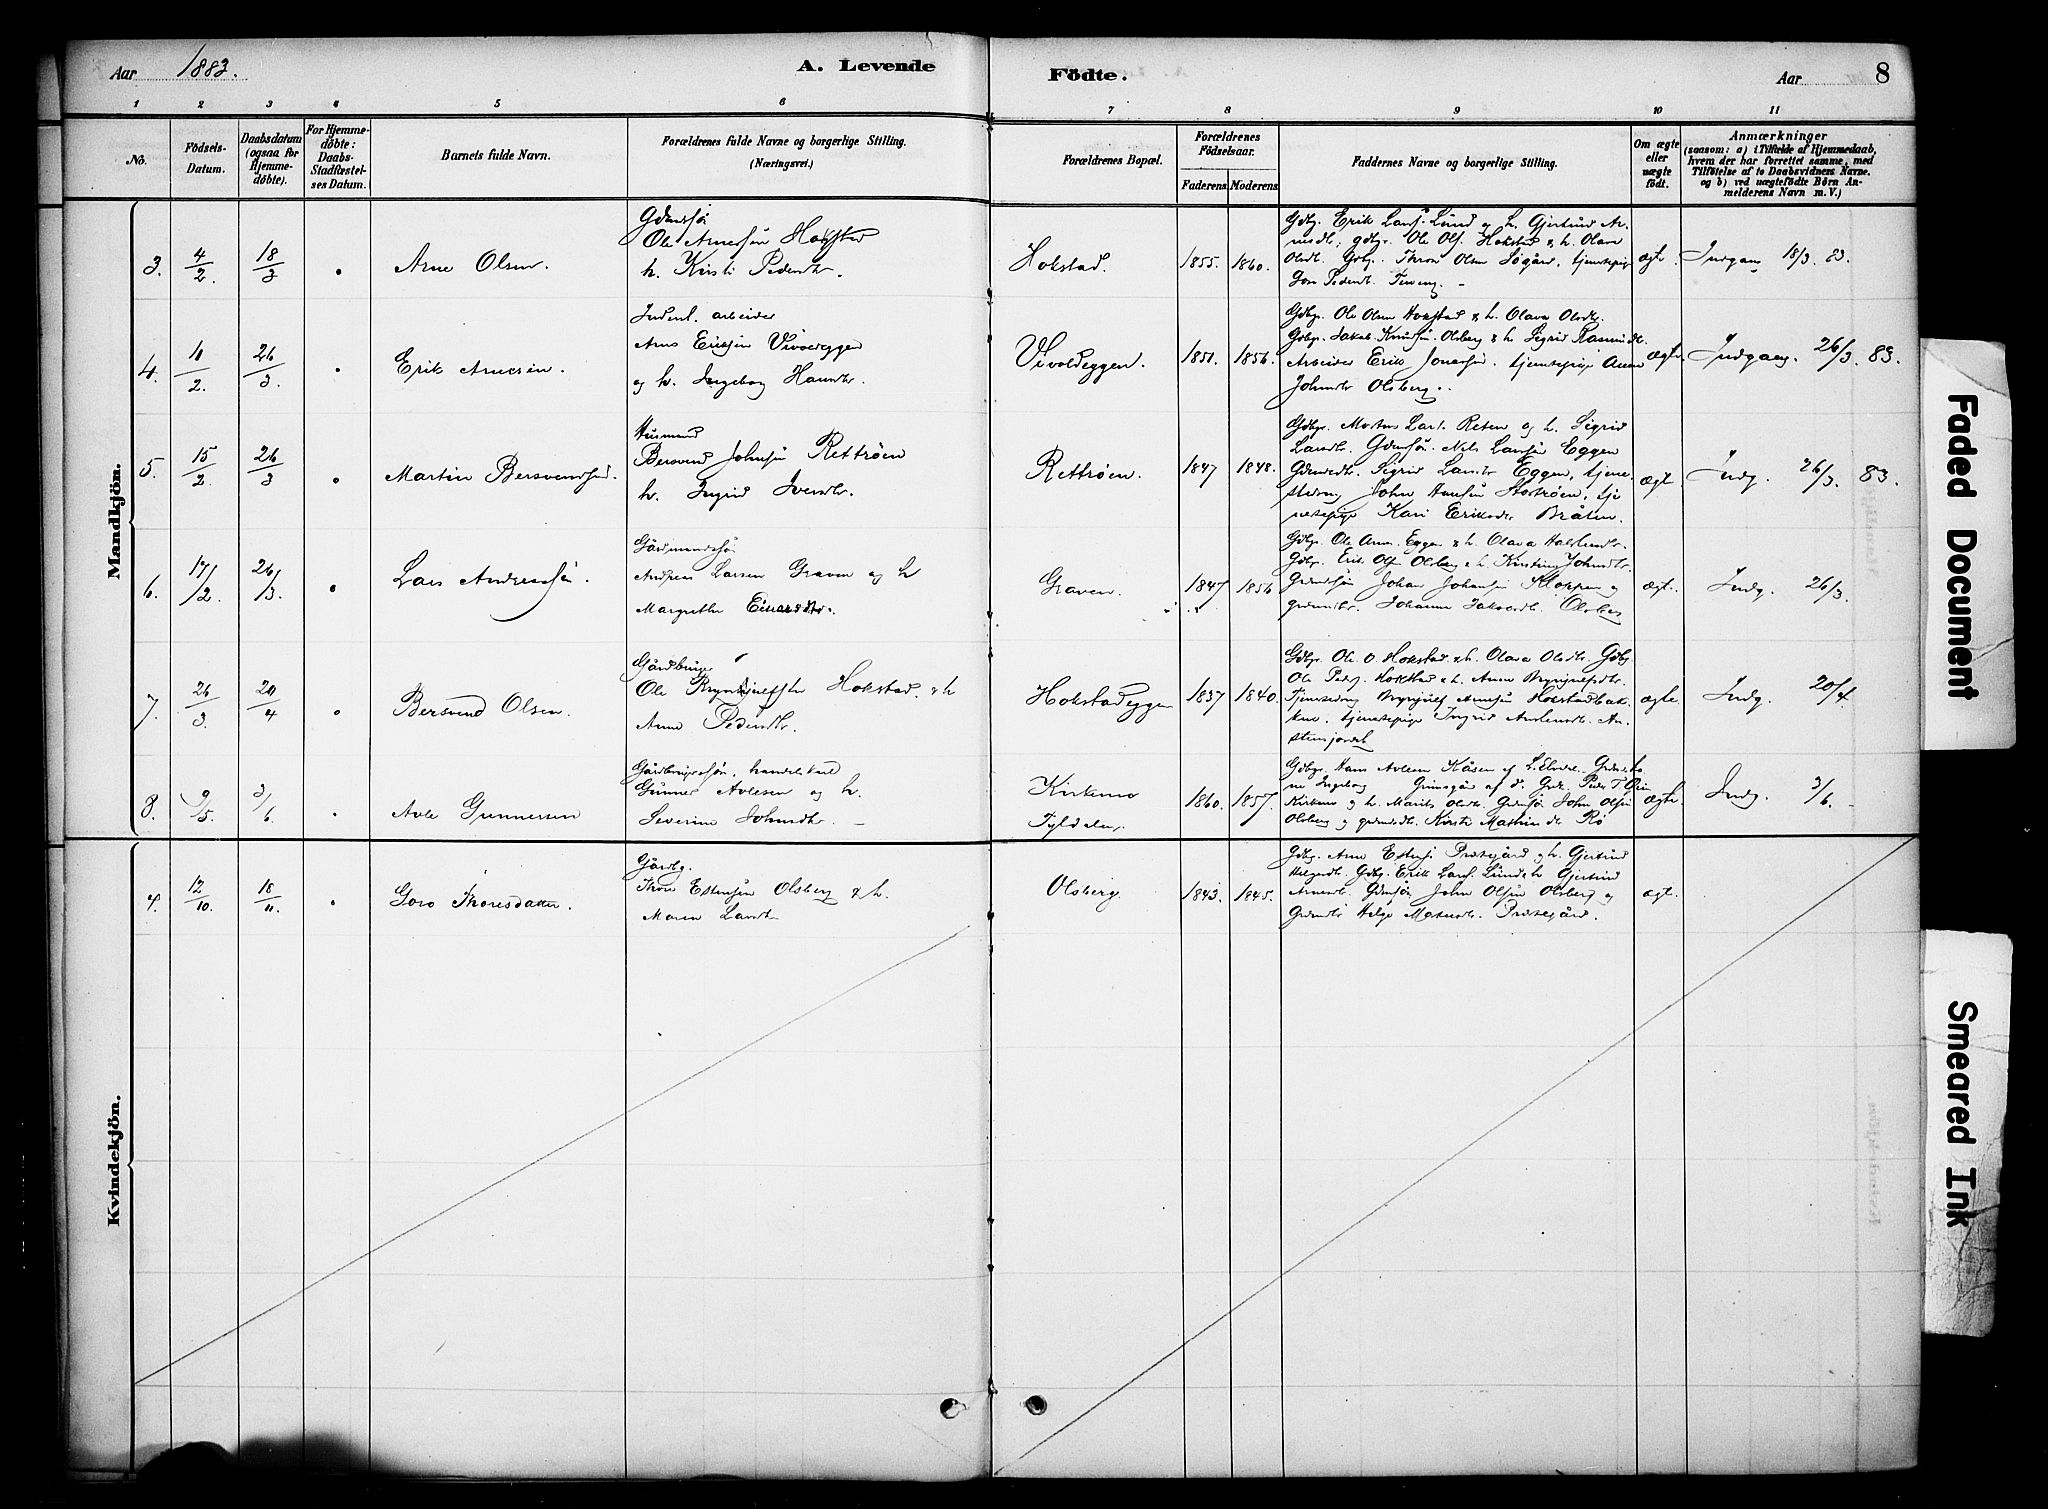 Aar 1883.
A. Levende
Födte.
Aar
8
1 2 3 4 5 6 7 8 9 10 11
No.
Födsels-
Datum.
Daabsdatum
(ogsaa for
Hjemme-
döbte).
For Hjemme-
döbte:
Daabs-
Stadfæstel-
ses Datum.
Barnets fulde Navn.
Forældrenes fulde Navne og borgerlige Stilling.
(Næringsvei.)
Forældrenes Bopæl.
Forældrenes
Födselsaar.
Faderens.
Moderens.
Faddernes Navne og borgerlige Stilling.
Om ægte
eller
uægte
födt.
Anmærkninger
(saasom: a) i Tilfælde af Hjemmedaab,
hvem der har forrettet samme, med
Tilföielse af to Daabsvidners Navne.
og b) ved uægtefödte Börn An-
melderens Navn m. V.)
Mandkjön.
3. 4/2 18/3 Arne Olsen.
Gdmdsön
Ole Arnessön Hokstad
h. Kirsti Pedersdtr.
Hokstad. 1855. 1860.
Gdbgr. Erik Larss. Lund og h. Gjertrud Ar-
nesdtr., gdbgr. Ole Ols. Hokstad & h. Olava
Olsdtr. Gdbgr. Thron Olsen Søgård, tjenestepige
Goro Pedersdtr.
ægte Indgang 18/3 83.
4. 11/2 26/3 Erik Arnesön.
arbeider
Arne Eriksön Vivoldeggen
og h. Ingeborg Hansdtr.
Vivoldeggen. 1851. 1856.
Gdbgr. Ole Olsen Hokstad & h. Olava Olsdtr.
Gdbgr. Jakob Knudsön Olsberg & h. Sigrid Rasmusdtr.
Arbeider Erik Jonassön. tjenestepige Anne
Johnsdtr Olsberg.
ægte Indgang. 26/3 83.
5. 15/2 26/3 Martin Bersvendsen
Husmand
Bersvend Johnsön Rettröen
h. Ingrid Iversdtr.
Rettröen. 1847 1848.
Gdbgr. Morten Lars. Reten og h. Sigrid
Larsdtr. Gdmsön. Nils Larssön Eggen
Gdmdsdtr. Sigrid Larsdtr Eggen, tjene-
stedreng John Hansön Storröen, tje-
nestepige Kari Eriksdtr Bråten.
ægte Indg. 26/3. 83.
6. 17/2 26/3. Lars Andreassön.
Gårdmandssön
Andreas Larsen Graven og h
Margrethe Einarsdtr.
Graven. 1847 1856
Gdbgr. Ole Arns. Eggen & h. Olava Halstensdtr.
Gdbgr. Erik Ols. Olsberg & h. Kirstine Johnsdtr.
Gdmdsön Johan Johansön Kloppen og
gdmdtr. Johanna Jakobsdtr. Olsberg
ægt. Indg. 26/3.
7. 26/3. 20/4 Bersvend Olsen.
Gårdbruger
Ole Brynjulfsen Hokstad. & h
Anne Pedersdtr.
Hokstadeggen 1837 1840.
Gdbgr. Ole O. Hokstad & h. Olava Olsdtr. Gdbgr.
Ole Peders. Hokstad & h. Anne Brynjulfsdtr.
Tjenestedreng Brynjulf Arnesön Hokstadbak-
ken. tjenestepige Ingrid Anstensdtr. An-
stensjordet
ægte Indg. 20/4.
8. 9/5. 3/6. Avle Gunnersen
Gårdbrugersön. handelskarl
Gunner Avlesen og h.
Severine Johnsdtr. —
Kirkemo
Tyldalen. 1860. 1857.
Gdbgr. Hans Avlesen Kåsen af
Kirkemo og h. Marit Olsdtr. Gdmsön John Olsön
Olsberg og gdmsdtr. Kirsti Mathisdtr. Rö
ægte Indg. 3/6. –
Kvindekjön.
4. 12/10. 18/11. Goro Thoresdatter.
Gårdbg.
Thore Estensön Olsberg & h.
Maren Larsdtr
Olsberg. 1843. 1845.
Gdbgr. Arne Estensön Præstgård og h. Gjertrud
Helgesdtr. Gdbgr. Erik Larss. Lund & h Gjertrud
Arnesdtr. Gdmsön John Olsön Olsberg og
Gdmdtr Helga Mortensdtr. Præstegård.
ægt.
Faded Document
Smeared Ink